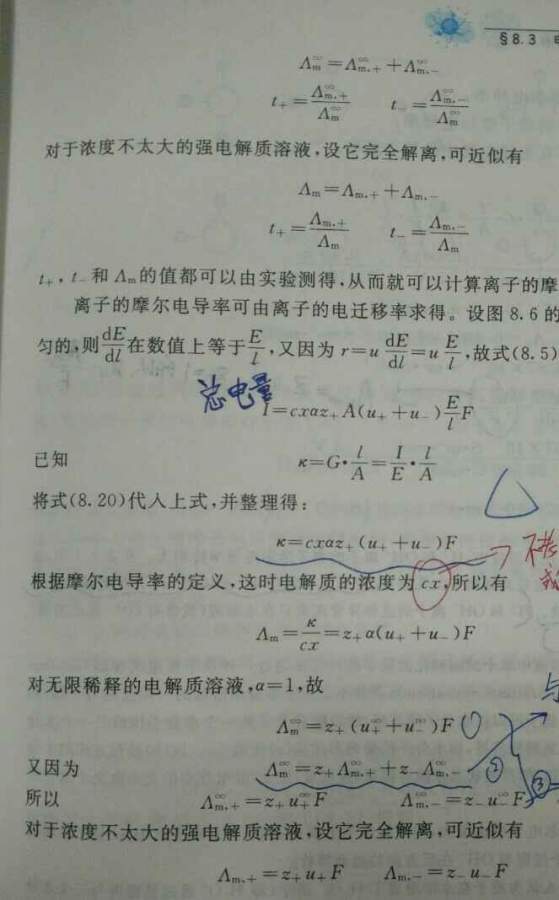 §8.3
Λₘ^∞=Λ^∞ₘ,₊+Λ^∞ₘ,₋
t₊=Λ^∞ₘ,₊/Λ^∞ₘ t₋=Λ^∞ₘ,₋/Λ^∞ₘ
对于浓度不太大的强电解质溶液,设它完全解离,可近似有
Λₘ=Λₘ,₊+Λₘ,₋
t₊=Λₘ,₊/Λₘ t₋=Λₘ,₋/Λₘ
t₊,t₋和Λₘ的值都可以由实验测得,从而就可以计算离子的摩
离子的摩尔电导率可由离子的电迁移率求得。设图8.6的
匀的,则dE/dl在数值上等于E/l,又因为r=u dE/dl=u E/l,故式(8.5)
总电量
I=cxαz₊A(u₊+u₋)E/l F
已知 κ=G·l/A=I/E·l/A
将式(8.20)代人上式,并整理得:
κ=cxαz₊(u₊+u₋)F
根据摩尔电导率的定义,这时电解质的浓度为cx,所以有
Λₘ=κ/cx=z₊α(u₊+u₋)F
对无限稀释的电解质溶液,α=1,故
与
Λ^∞ₘ=z₊(u^∞₊+u^∞₋)F ①
又因为 Λ^∞ₘ=z₊Λ^∞ₘ,₊+z₋Λ^∞ₘ,₋ ②
③
所以 Λ^∞ₘ,₊=z₊u^∞₊F Λ^∞ₘ,₋=z₋u^∞₋F
对于浓度不太大的强电解质溶液,设它完全解离,可近似有
Λₘ,₊=z₊u₊F Λₘ,₋=z₋u₋F